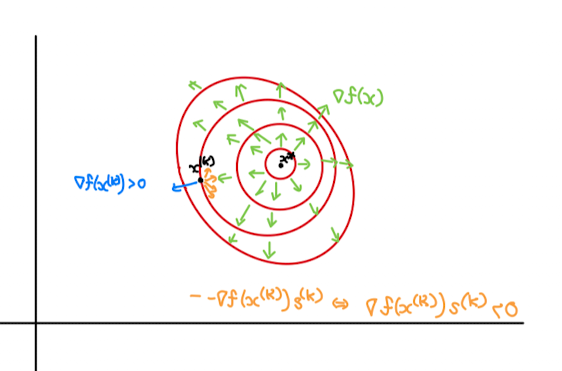 ∇f(x)
x*
x(k)
∇f(x(k))>0
- -∇f(x(k)) s(k) ⇔ ∇f(x(k)) s(k) <0